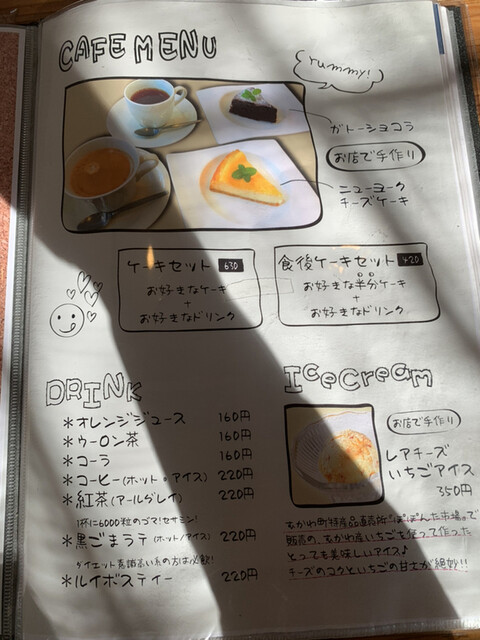 CAFE MENU
yummy!
ガトーショコラ
お店で手作り
ニューヨーク
チーズケーキ
ケーキセット 630
お好きなケーキ
+
お好きなドリンク
食後ケーキセット 420
お好きな半分ケーキ
+
お好きなドリンク
DRINK
*オレンジジュース 160円
*ウーロン茶 160円
*コーラ 160円
*コーヒー(ホット・アイス) 220円
*紅茶(アールグレイ) 220円
1杯に6000粒のゴマ!セサミン!
*黒ごまラテ(ホット/アイス) 220円
ダイエット意識高い系の方は必飲!
*ルイボスティー 220円
IceCream
お店で手作り
レアチーズ
いちごアイス
350円
ちかわ町特産品直売所"ぽぽんた市場"で
販売の、ちかわ産いちごを使って作った
とっても美味しいアイス♪
チーズのコクといちごの甘さが絶妙!!